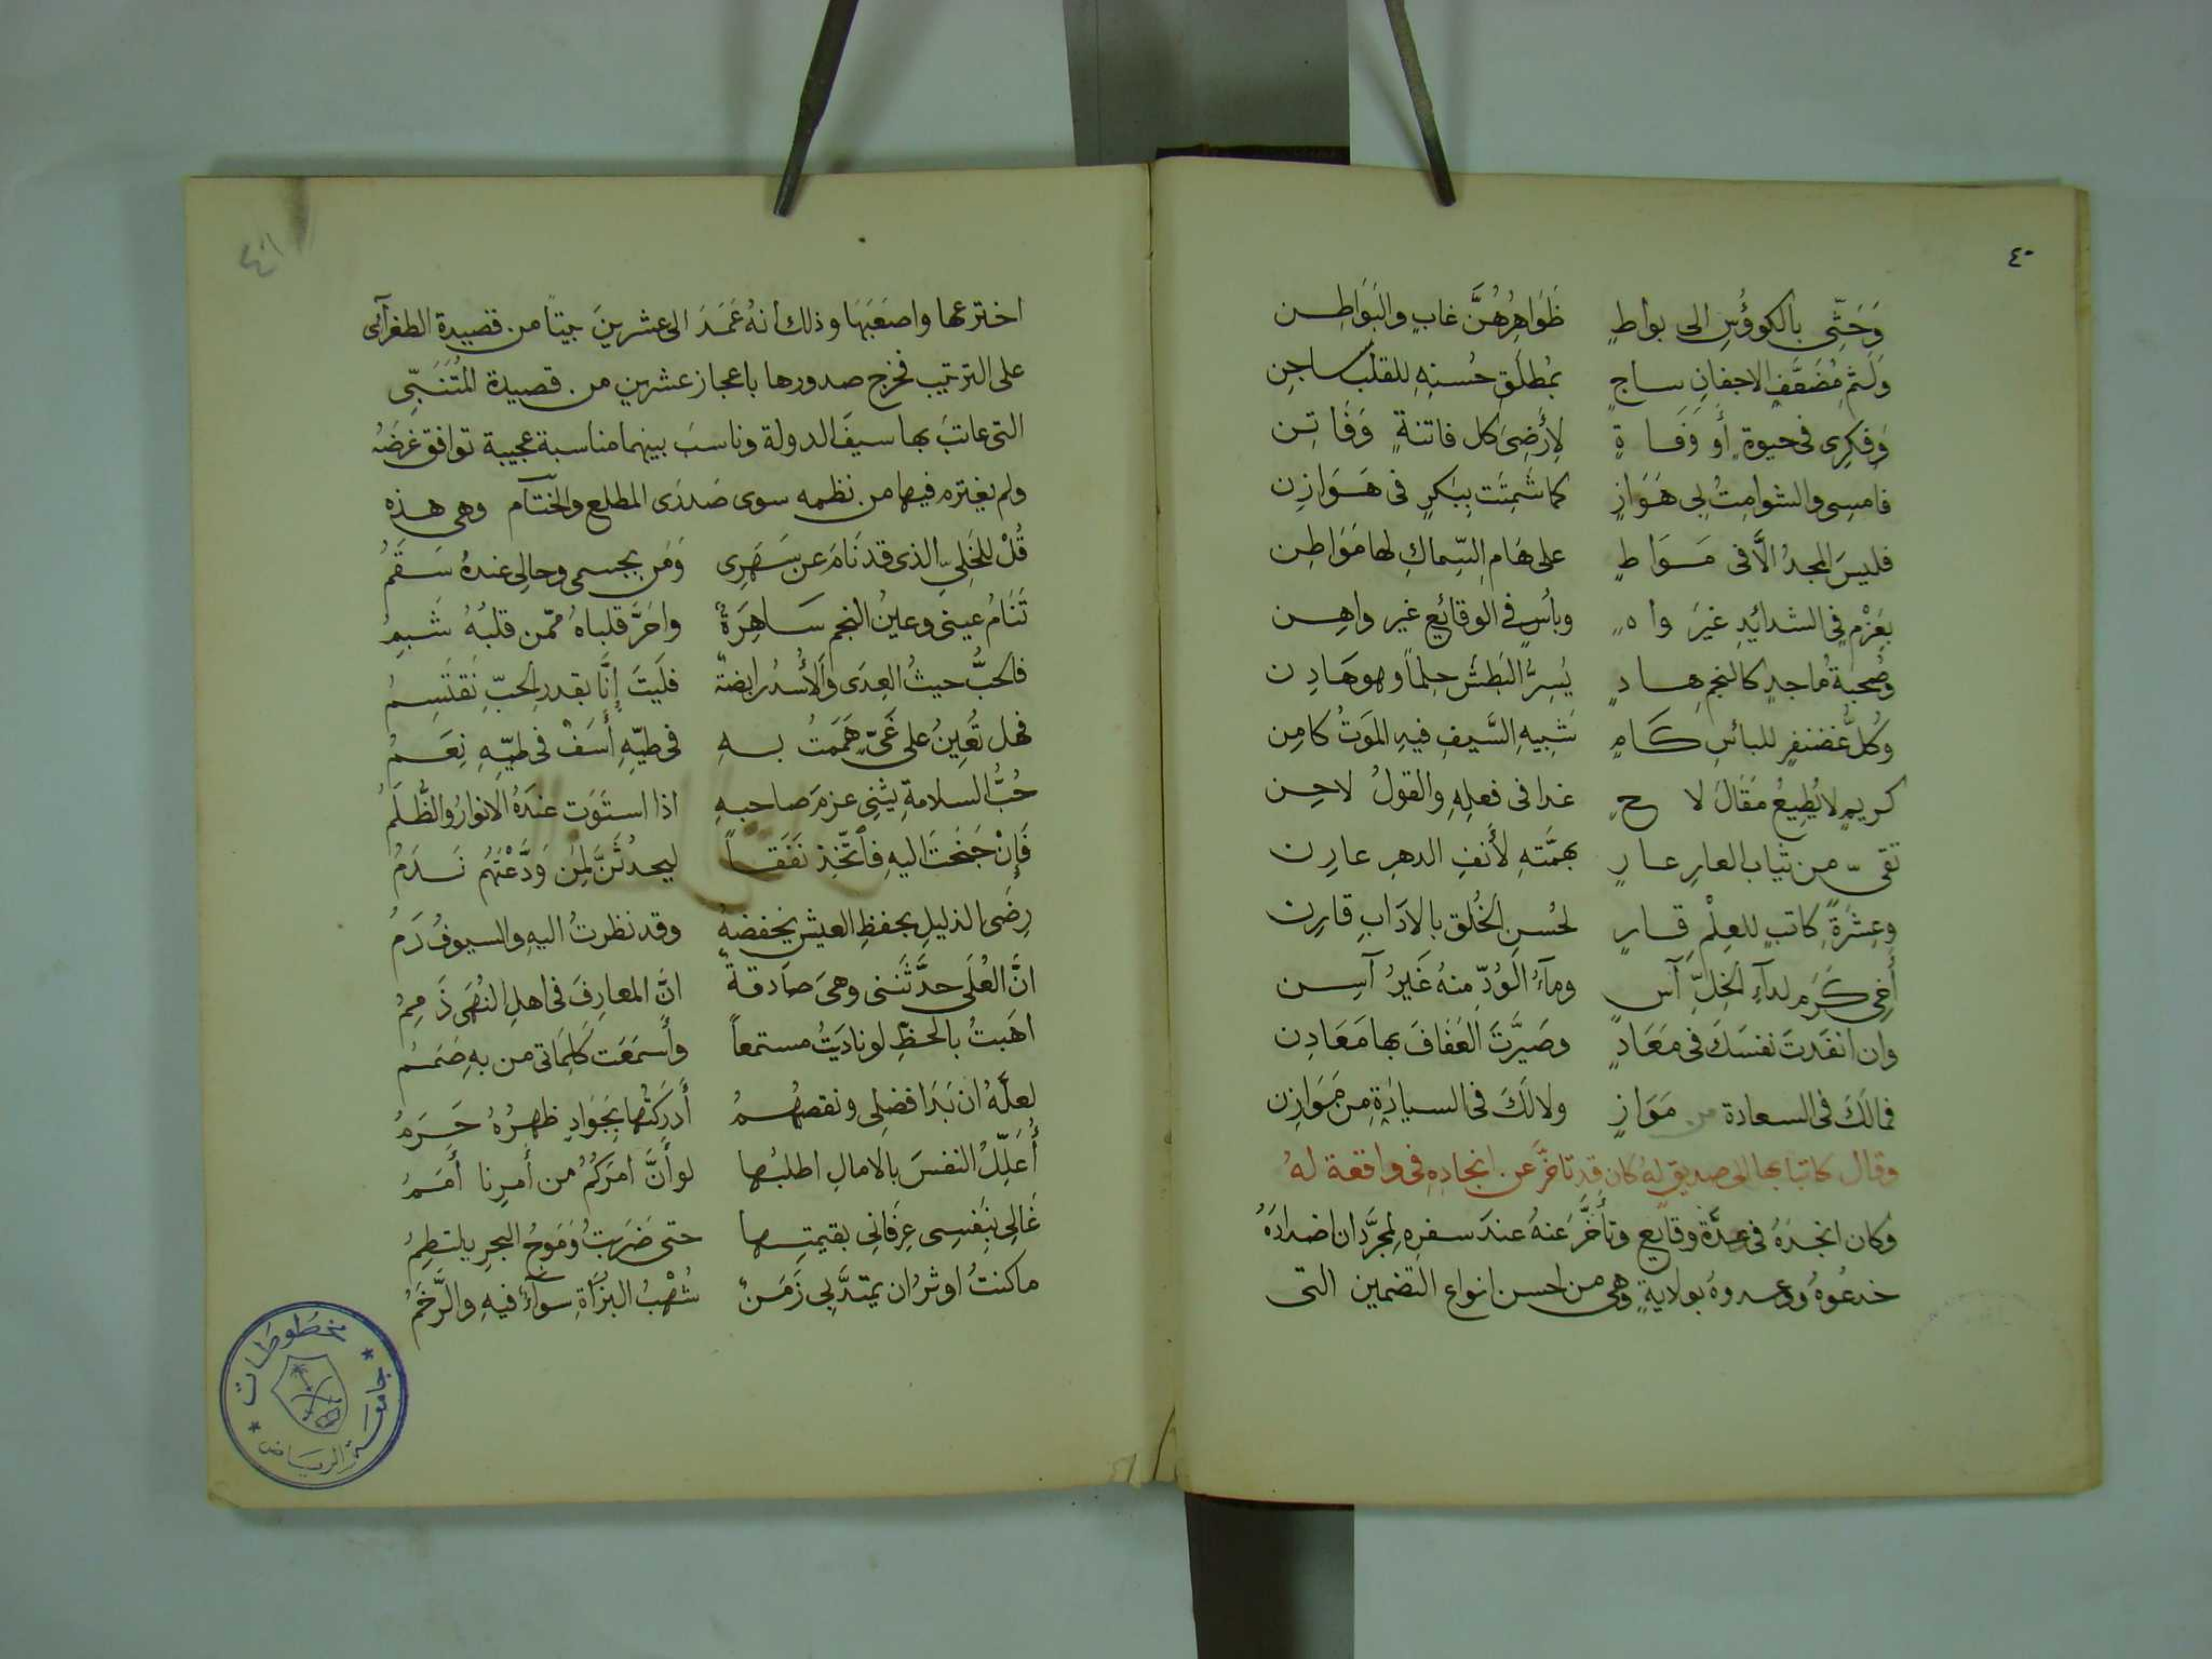 ٤٠
وَحَثِّى بالكووُسِ الى بواطٍ ظَوَاهِرُهُنَّ غابٍ والبَوَاطِن
وَلَثمِ مُضَعَّفِ الاجفانِ ساجٍ بمُطلَقِ حُسنِهِ للقلبِ ساجِن
وَفِكرِى فى حيوةٍ أو وَفَاةٍ لِأَرْضِىَ كل فاتنةٍ وَفَاتِن
فامسِى والشوامِتُ بى هَوَازٍ كما شَمِتَت بِبَكرٍ فى هَوَازِن
فليسَ المجدُ الَّا فى مَوَاطٍ على هَامِ السِّماكِ لها مَوَاطِن
بعَزْمٍ فى الشدائِدِ غيرَ واهٍ وبأسٍ فى الوقائِعِ غير واهِن
وصُحبةُ ماجدٍ كالنجم هادٍ يُسِرُّ البَطشَ حِلماً وهو هَادِن
وكُلُّ غضنفرٍ للبائسِ كَامٍ شَبِيهِ السَّيفِ فيهِ المَوتُ كامِن
كريمٍ لا يُطِيعُ مَقَالَ لاحٍ غدا فى فعلِهِ والقولُ لاحِن
نقىّ من ثياب العارِ عارٍ بهمَّتهِ لأَنفِ الدهرِ عارِن
وعِشرَةِ كاتبٍ للعِلْمِ قارٍ لحُسنِ الخُلق بالادَابِ قارِن
أخى كَرَمٍ لداءِ الخِلِّ آس وماءُ الوُدِّ منهُ غَيرُ آسِن
وان انفَدتَ نفسَكَ فى مَعَادٍ وصَيَّرتَ العَفَافَ بها مَعَادِن
فمالَكَ فى السعادة من مَوَازٍ ولا لَكَ فى السيادَةِ مِن مَوَازِن
وقال كاتبا بها الى صديق لهُ كان قد تاخَّر عن انجادِهِ فى واقعة لهُ
وكان انجدَهُ فى عِدَّة وقايع وتأخَّر عنهُ عندَ سفرِه لمجرَّد ان اضدادَهُ
خدعُوهُ ووعدوهُ بولايةٍ وهى من احسن انواع التضمين التى
٤١
اخترعها واصعَبَهَا وذلك انهُ عَمَدَ الى عشرينَ بيتاً من قصيدة الطغرآئى
على الترتيب فخرج صدورها باعجاز عشرين من قصيدة المُتَنَبِّى
التى عاتبَ بها سيفَ الدولة وناسبَ بينهما مناسبة عجيبة توافق غرضَهُ
ولم يغيّره فيها من نظمه سوى صَدرَى المطلع والختآم وهى هذِهِ
قُلْ للخَلِيّ الذى قد نَامَ عن سَهَرِى وَمَن بجسمى وحالِى عندهُ سَقَمُ
تَنَامُ عينى وعينُ النجم سَاهِرَةٌ واحَرَّ قلباهُ ممّن قلبُهُ شَبِمُ
فالحبُّ حيثُ العِدَى والأُسدُ رابضةٌ فلَيتَ إنَّا بقدرِ الحبِّ نَقتَسِمُ
فهل تُعِينُ على غَىٍّ هَمَمتُ بهِ فى طيّهِ أَسَفْ فى طيّهِ نِعَمُ
حُبُّ السلامةِ يثنِى عزمَ صاحبهِ اذا استَوَت عندَهُ الانوارُ والظُّلَمُ
فَإِنْ جَنَحتَ اليهِ فاتّخِذ نَفَقاً ليحدُثَنَّ لِمَن وَدَّعْتَهُم نَدَمُ
رِضَى الذليلِ بحفظِ العيشِ يخفضهُ وقد نظرتُ اليهِ والسيوفُ دَمُ
انَّ العُلَى حدَّثَتنى وهىَ صادقةٌ انَّ المعارِفَ فى اهلِ النُهَى ذَمِمُ
اهَبتُ بالحظِّ لو نادَيتُ مستمعاً وأسمَعَت كَلِمَاتى من بهِ صَمَمُ
لعلّهُ ان بَدَا فضلى ونقصهُمُ أَدرَكتُها بجَوَادٍ ظهرُهُ حَرَمُ
أُعَلِّلُ النفسَ بالامالِ اطلبُها لو أَنَّ امرَكُمُ من أَمرِنا أَمَمُ
غَالى بِنَفسِى عِرفَانِى بقيمتِها حتى ضَرَبتُ وَمَوجُ البحرِ يلتطِمُ
ما كنتُ اوثرُ ان يمتدَّ بى زَمَنٌ شُهْبُ البُزَاةِ سوآءٌ فيهِ والرَّخَمُ
مخطوطات
جامعة الرياض